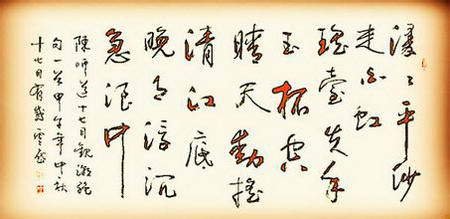 漫々平沙
走白虹
瑤臺失手
玉杯空
晴天動搖
清江底
晚日浮沉
急浪中
陳師道十七日觀潮絕
句一首甲午年中秋
十七日有感